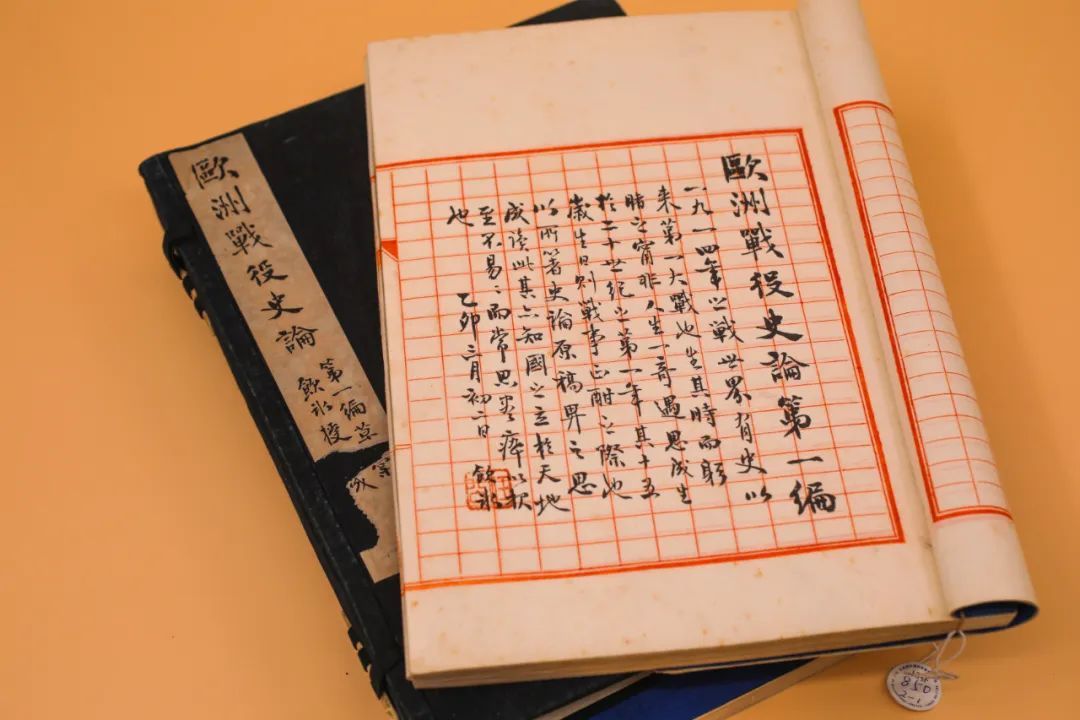 歐洲戰役史論
第一編草
飲冰授
歐洲戰役史論第一編
一九一四年之戰世界有史以
来第一大戰也生其時而躬
睹之甯非人生一奇遇思成生
於二十世紀之第一年其十五
歲生日則戰事正酣之際也
以所著史論原稿畀之思
成讀此其亦知國之立於天地
至不易、而常思盡瘁以報
也
乙卯三月初二日 飲冰
850
2-1